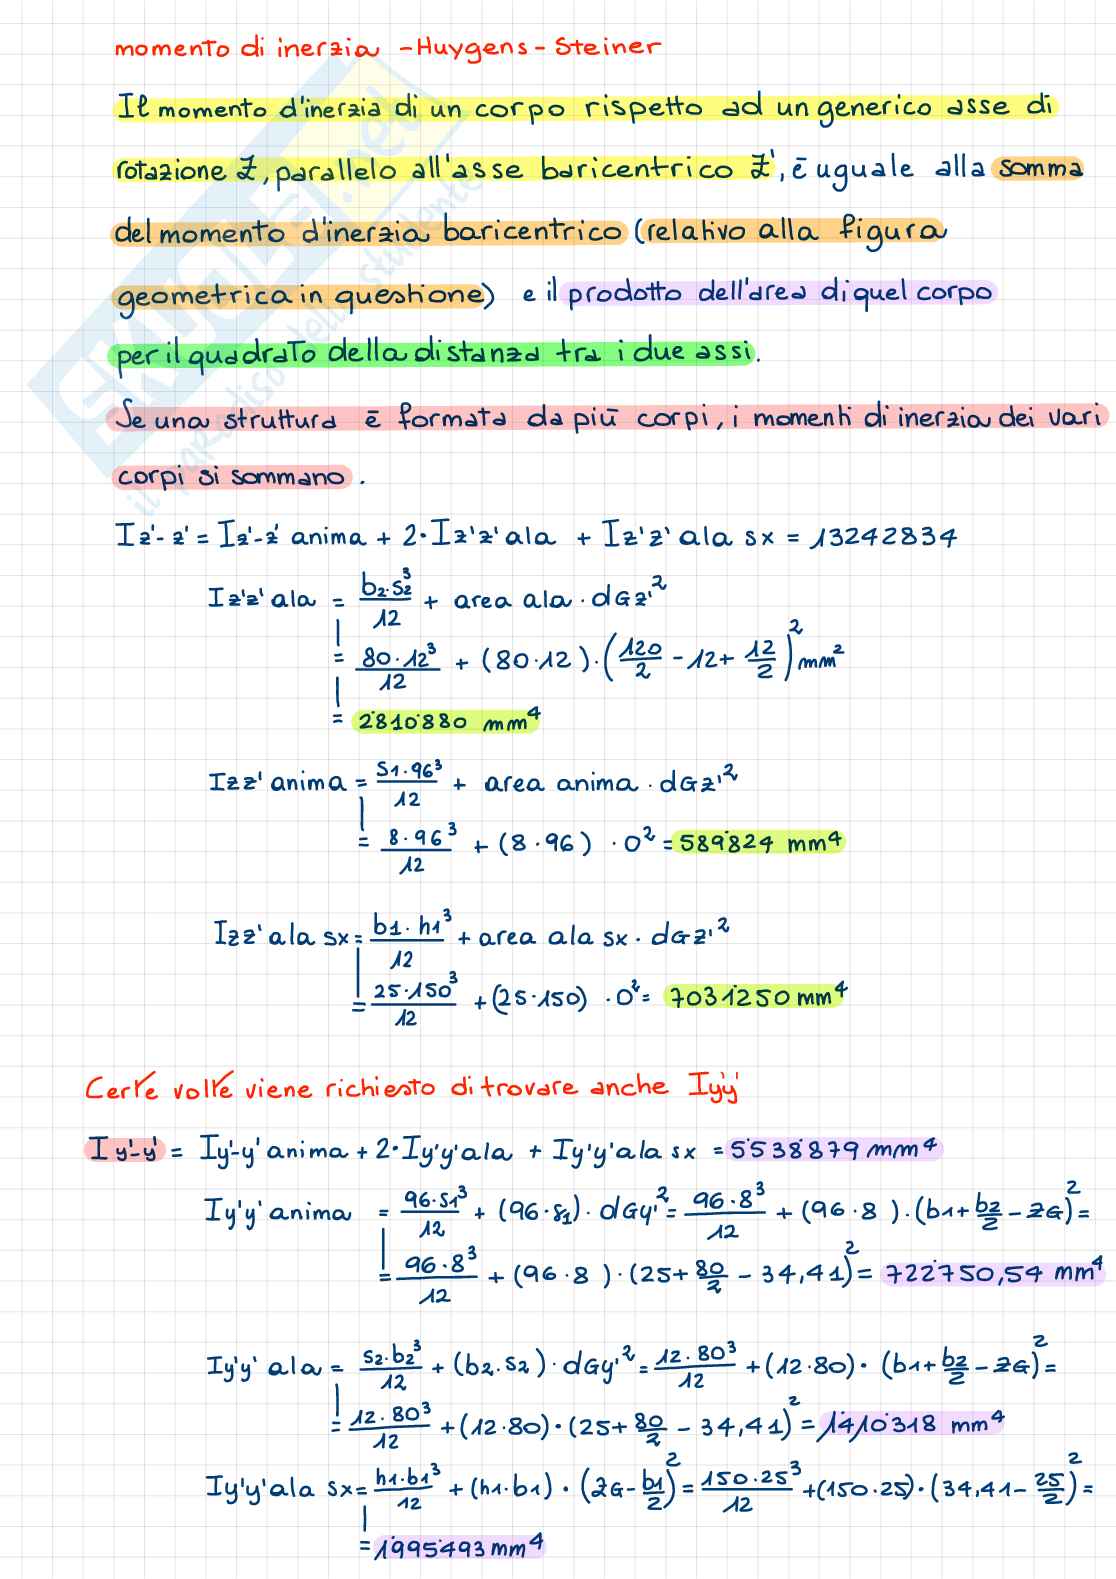 momento di inerzia - Huygens - Steiner
Il momento d'inerzia di un corpo rispetto ad un generico asse di
rotazione Z, parallelo all'asse baricentrico Z', ē uguale alla somma
del momento d'inerzia baricentrico (relativo alla figura
geometrica in questione) e il prodotto dell'area di quel corpo
per il quadrato della distanza tra i due assi.
Se una struttura ē formata da più corpi, i momenti di inerzia dei vari
corpi si sommano.
Iz'-z' = Iz'-z' anima + 2·Iz'z' ala + Iz'z' ala sx = 13242834
Iz'z' ala = b2·s2³/12 + area ala · dGz'²
= 80·12³/12 + (80·12)·(120/2 - 12 + 12/2)² mm²
= 2'810'880 mm⁴
Izz' anima = s1·96³/12 + area anima · dGz'²
= 8·96³/12 + (8·96) · 0² = 589'824 mm⁴
Izz' ala sx = b1·h1³/12 + area ala sx · dGz'²
= 25·150³/12 + (25·150) · 0² = 7031250 mm⁴
Certe volte viene richiesto di trovare anche Iy'y'
Iy'-y' = Iy'-y' anima + 2·Iy'y' ala + Iy'y' ala sx = 5'538'879 mm⁴
Iy'y' anima = 96·s1³/12 + (96·s1) · dGy'² = 96·8³/12 + (96·8)·(b1 + b2/2 - ZG)² =
= 96·8³/12 + (96·8)·(25 + 80/2 - 34,41)² = 722'750,54 mm⁴
Iy'y' ala = s2·b2³/12 + (b2·s2) · dGy'² = 12·80³/12 + (12·80)·(b1 + b2/2 - ZG)² =
= 12·80³/12 + (12·80)·(25 + 80/2 - 34,41)² = 1'410'318 mm⁴
Iy'y' ala sx = h1·b1³/12 + (h1·b1)·(ZG - b1/2)² = 150·25³/12 + (150·25)·(34,41 - 25/2)² =
= 1'995'493 mm⁴
SKUOLA.net
il paradiso dello studente